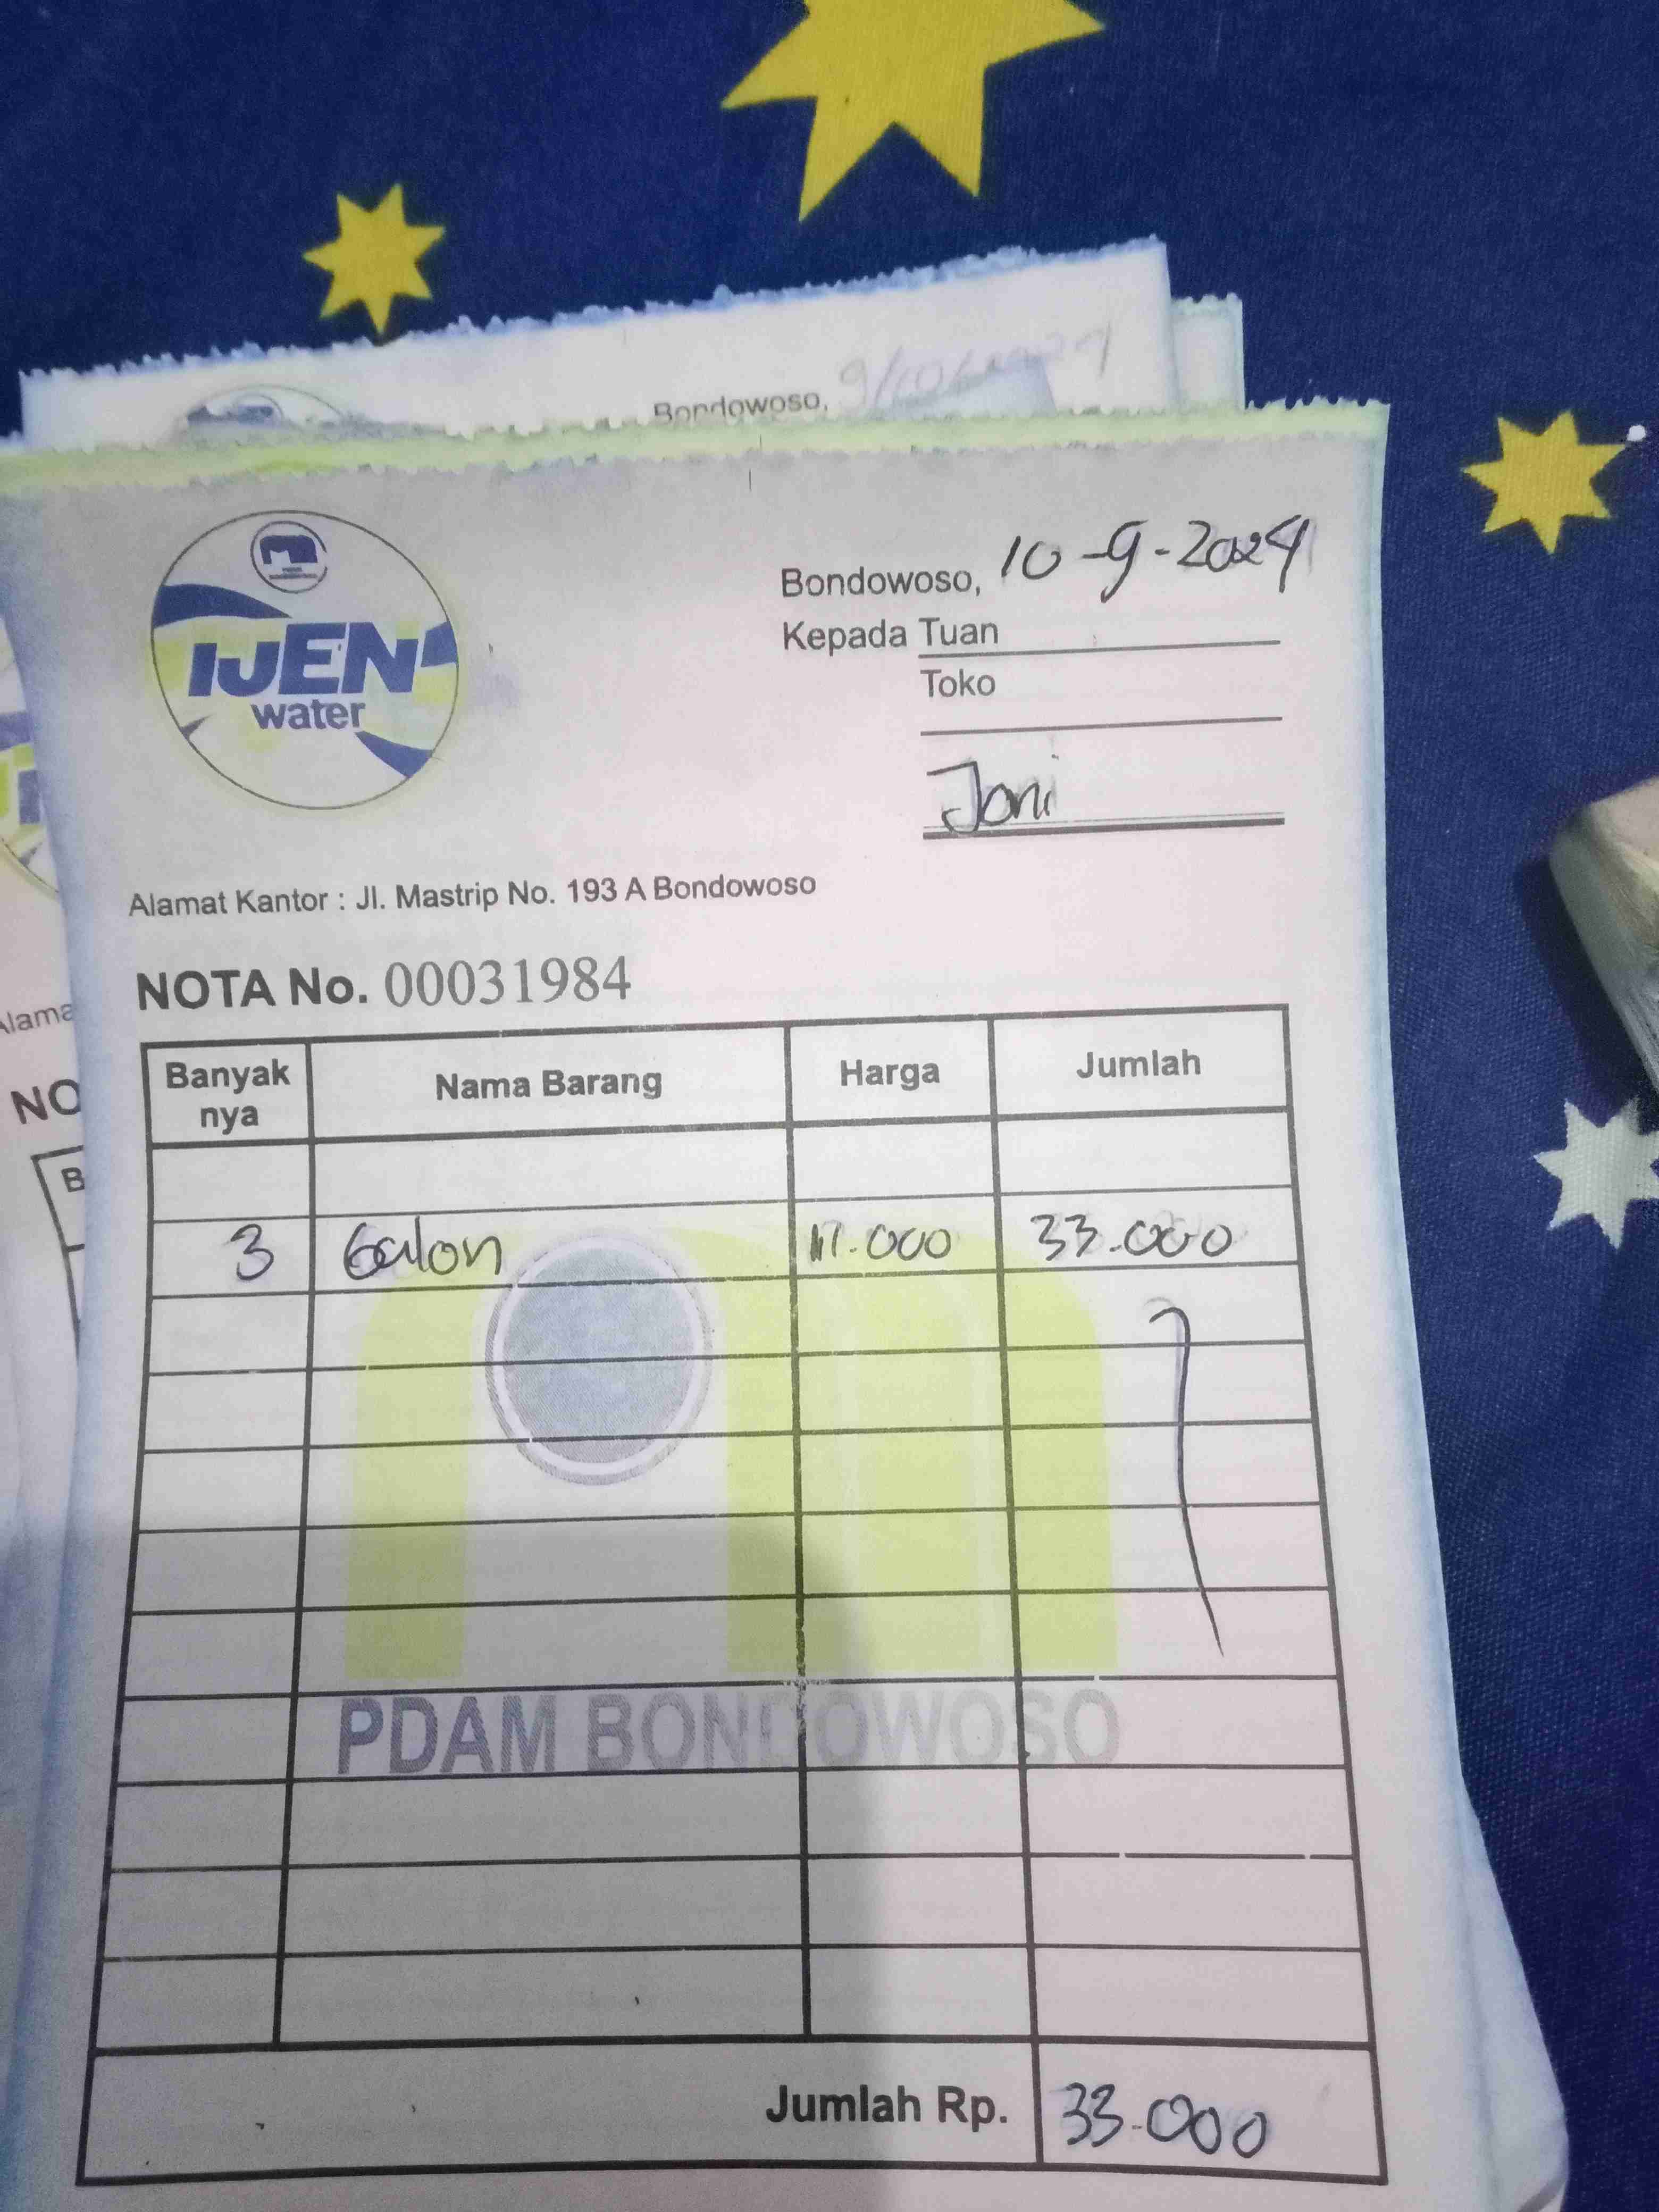 Bondowoso,
IJEN
water
Bondowoso, 10-9-2024
Kepada Tuan
Toko
Joni
Alamat Kantor : Jl. Mastrip No. 193 A Bondowoso
NOTA No. 00031984
Banyak nya Nama Barang Harga Jumlah
3 Galon 11.000 33.000
PDAM BONDOWOSO
Jumlah Rp. 33.000
Alama
NO
B